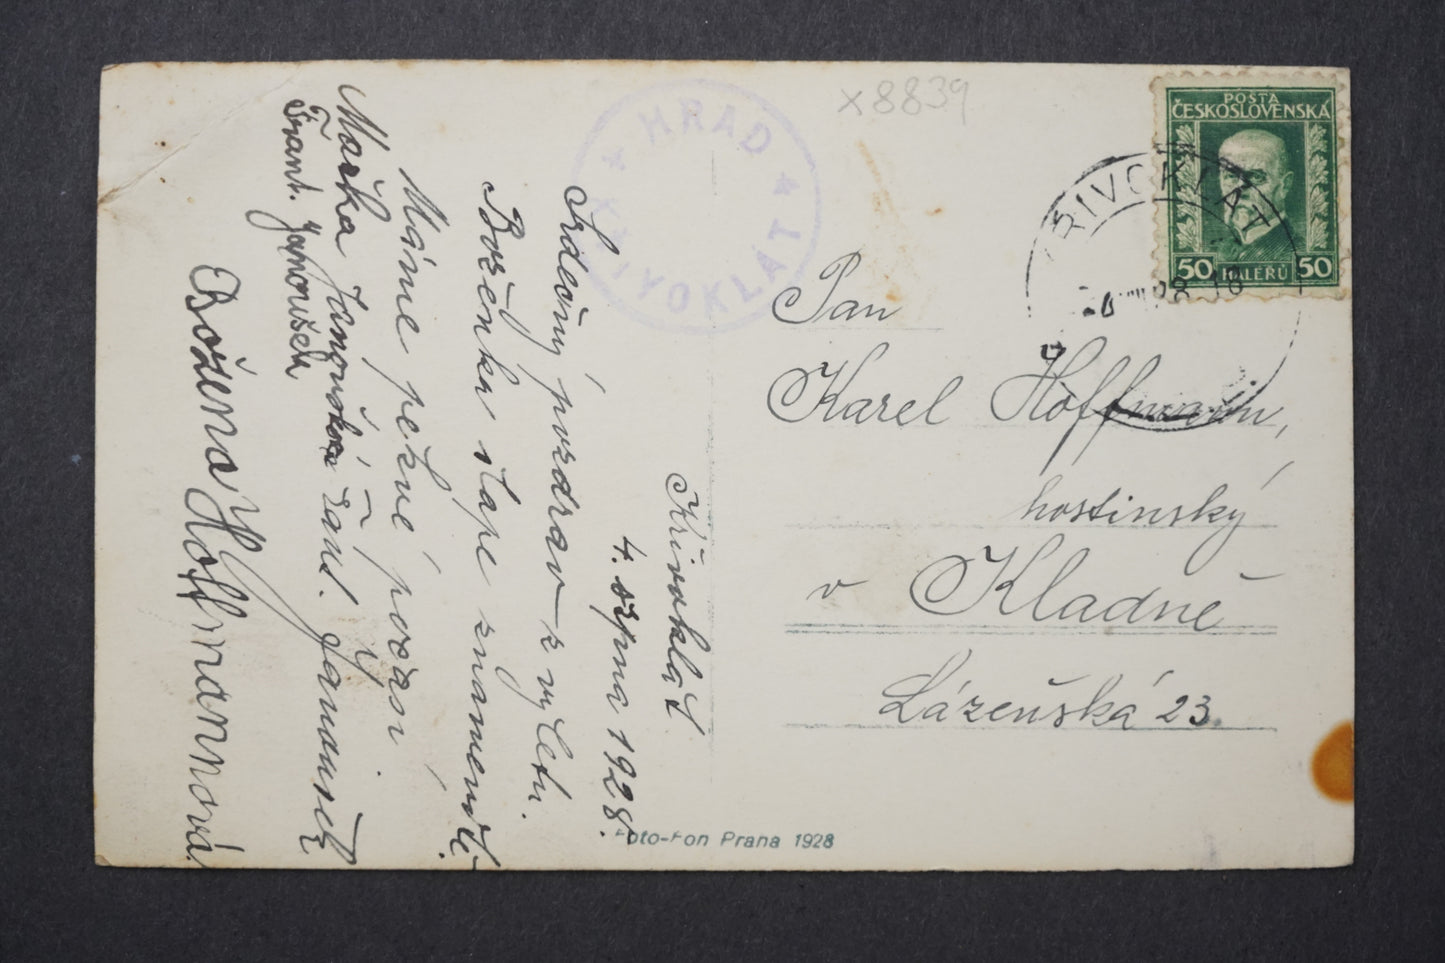 x 8839
HRAD
KŘIVOKLÁT
POŠTA
ČESKOSLOVENSKÁ
50 HALÉŘŮ 50
KŘIVOKLÁT
Křivoklát
4. srpna 1928.
Srdečný pozdrav z výletu.
Boženka šlape znamenitě.
Máme pěkné počasí.
Mařka Janoušková Fanč. Janoušek
Frant. Janoušek
Božena Hoffmannová
Pan
Karel Hoffmann,
hostinský
v Kladně
Lázeňská 23.
Foto-Fon Praha 1928